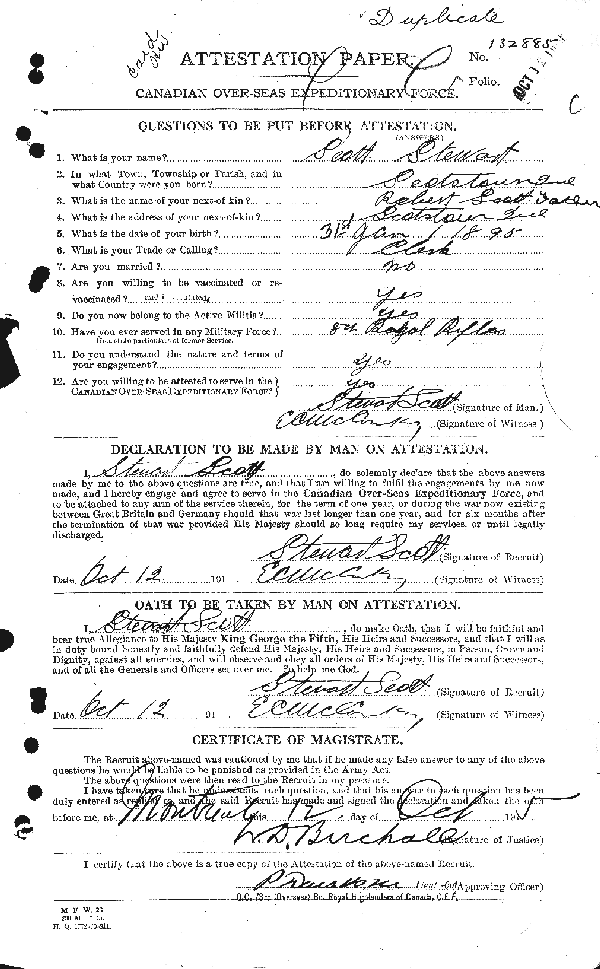 Duplicate
132885
ATTESTATION PAPER.
No.
Folio.
CANADIAN OVER-SEAS EXPEDITIONARY FORCE.
C
QUESTIONS TO BE PUT BEFORE ATTESTATION.
(ANSWERS)
1. What is your name? Scott Stewart
2. In what Town, Township or Parish, and in
what Country were you born? Scotstown Que
3. What is the name of your next-of-kin? Robert Scott Father
4. What is the address of your next-of-kin? Scotstown Que
5. What is the date of your birth? 31st Jan 1895
6. What is your Trade or Calling? Clerk
7. Are you married? no
8. Are you willing to be vaccinated or re-
vaccinated? Yes
9. Do you now belong to the Active Militia? Yes
10. Have you ever served in any Military Force? 8th Royal Rifles
If so, state particulars of former Service.
11. Do you understand the nature and terms of
your engagement? Yes
12. Are you willing to be attested to serve in the
CANADIAN OVER-SEAS EXPEDITIONARY FORCE? Yes
Stewart Scott (Signature of Man.)
(Signature of Witness)
DECLARATION TO BE MADE BY MAN ON ATTESTATION.
I, Stewart Scott, do solemnly declare that the above answers
made by me to the above questions are true, and that I am willing to fulfil the engagements by me now
made, and I hereby engage and agree to serve in the Canadian Over-Seas Expeditionary Force, and
to be attached to any arm of the service therein, for the term of one year, or during the war now existing
between Great Britain and Germany should that war last longer than one year, and for six months after
the termination of that war provided His Majesty should so long require my services, or until legally
discharged.
Stewart Scott (Signature of Recruit)
Date Oct 12 191 (Signature of Witness)
OATH TO BE TAKEN BY MAN ON ATTESTATION.
I, Stewart Scott, do make Oath, that I will be faithful and
bear true Allegiance to His Majesty King George the Fifth, His Heirs and Successors, and that I will as
in duty bound honestly and faithfully defend His Majesty, His Heirs and Successors, in Person, Crown and
Dignity, against all enemies, and will observe and obey all orders of His Majesty, His Heirs and Successors,
and of all the Generals and Officers set over me. So help me God.
Stewart Scott (Signature of Recruit)
Date Oct 12 191 (Signature of Witness)
CERTIFICATE OF MAGISTRATE.
The Recruit above-named was cautioned by me that if he made any false answer to any of the above
questions he would be liable to be punished as provided in the Army Act.
The above questions were then read to the Recruit in my presence.
I have taken care that he understands each question, and that his answer to each question has been
duly entered as replied to, and the said Recruit has made and signed the declaration and taken the oath
before me, at Montreal this 12 day of Oct 1915
W. D. Birchall (Signature of Justice)
I certify that the above is a true copy of the Attestation of the above-named Recruit.
(Approving Officer)
O.C. 73rd (Overseas) Bn. Royal Highlanders of Canada, C.E.F.
M. F. W. 23